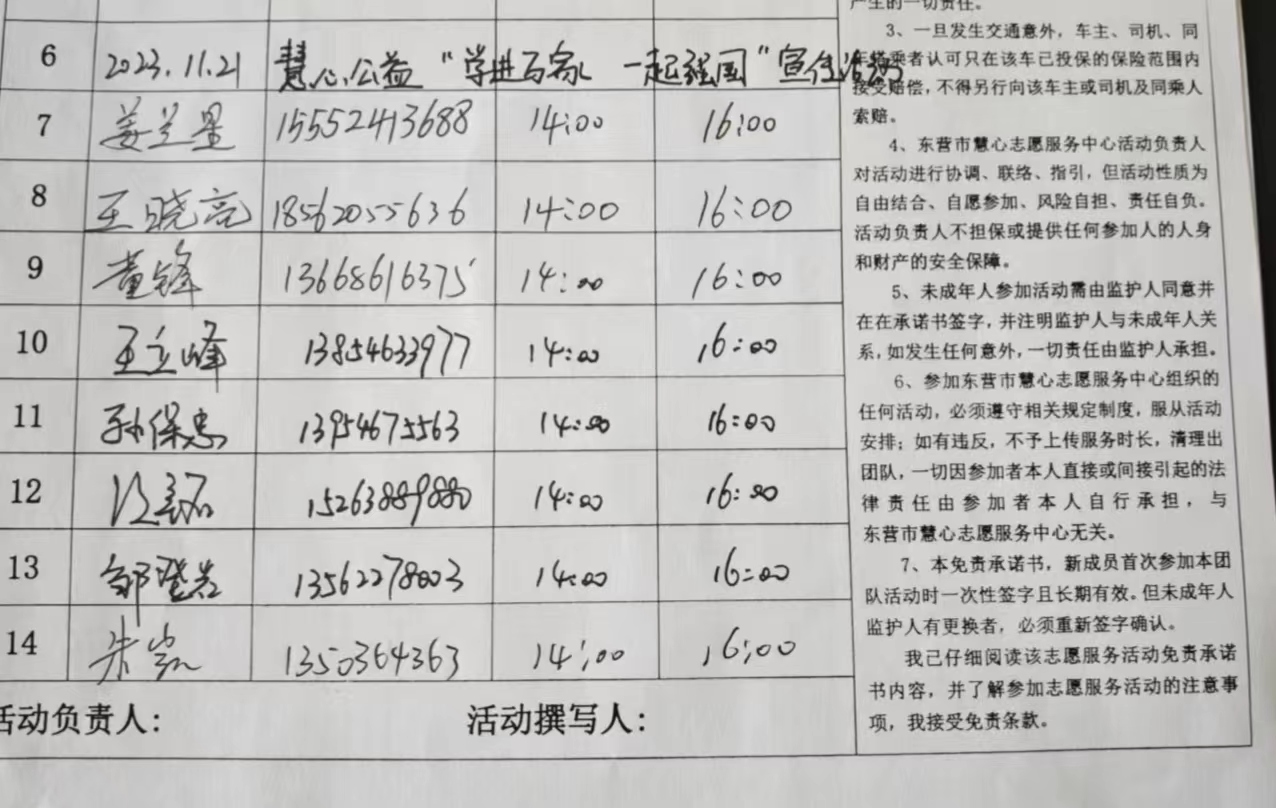 6 2023.11.21 慧心公益“学进万家 一起强国”宣传活动
7 姜兰星 15552413688 14:00 16:00
8 王晓亮 18562055636 14:00 16:00
9 董锋 13668616375 14:00 16:00
10 王立峰 13854633977 14:00 16:00
11 孙保忠 13954675563 14:00 16:00
12 15263889880 14:00 16:00
13 邹登岩 13562278003 14:00 16:00
14 朱岩 1350364363 14:00 16:00
活动负责人: 活动撰写人:
产生的一切责任。
3、一旦发生交通意外，车主、司机、同
车搭乘者认可只在该车已投保的保险范围内
接受赔偿，不得另行向该车主或司机及同乘人
索赔。
4、东营市慧心志愿服务中心活动负责人
对活动进行协调、联络、指引，但活动性质为
自由结合、自愿参加、风险自担、责任自负。
活动负责人不担保或提供任何参加人的人身
和财产的安全保障。
5、未成年人参加活动需由监护人同意并
在在承诺书签字，并注明监护人与未成年人关
系，如发生任何意外，一切责任由监护人承担。
6、参加东营市慧心志愿服务中心组织的
任何活动，必须遵守相关规定制度，服从活动
安排；如有违反，不予上传服务时长，清理出
团队，一切因参加者本人直接或间接引起的法
律责任由参加者本人自行承担，与
东营市慧心志愿服务中心无关。
7、本免责承诺书，新成员首次参加本团
队活动时一次性签字且长期有效。但未成年人
监护人有更换者，必须重新签字确认。
我已仔细阅读该志愿服务活动免责承诺
书内容，并了解参加志愿服务活动的注意事
项，我接受免责条款。